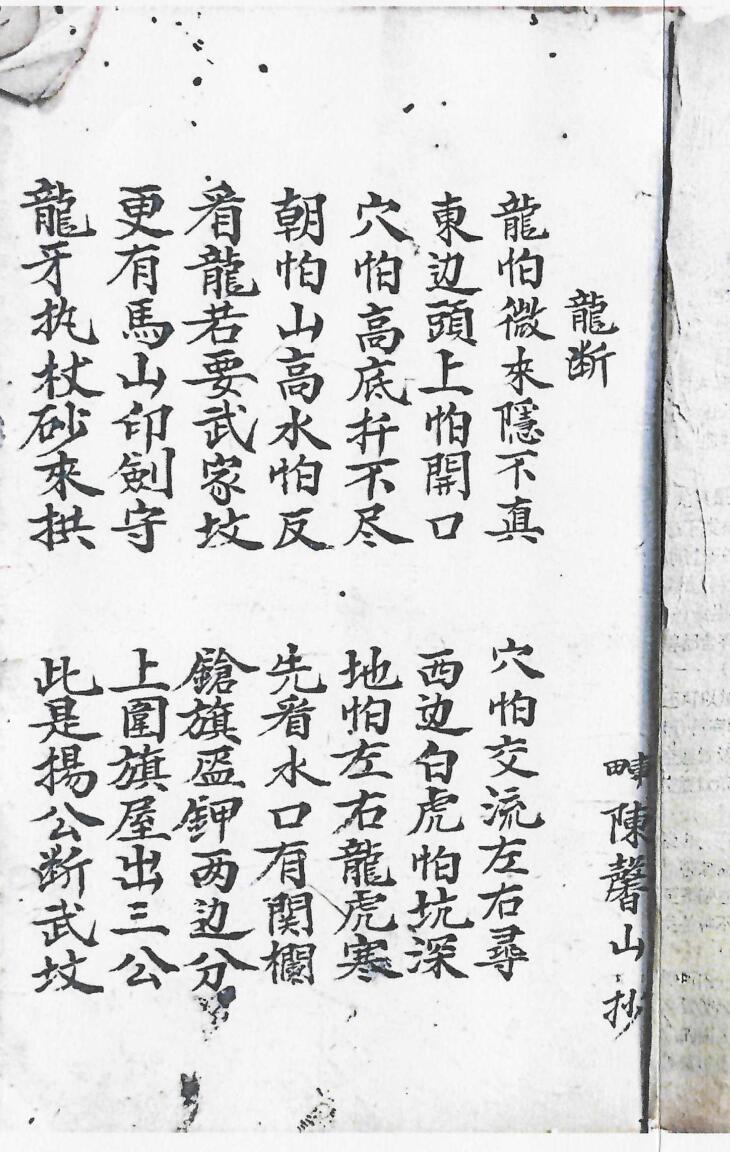 陳馨山抄
龍断
龍怕微來隱不真　穴怕交流左右尋
東边頭上怕開口　西边白虎怕坑深
穴怕高底扦不尽　地怕左右龍虎寒
朝怕山高水怕反　先看水口有関欄
看龍若要武家坟　鎗旗盔鉀两边分
更有馬山印劍守　上圍旗屋出三公
龍牙执杖砂來拱　此是揚公断武坟